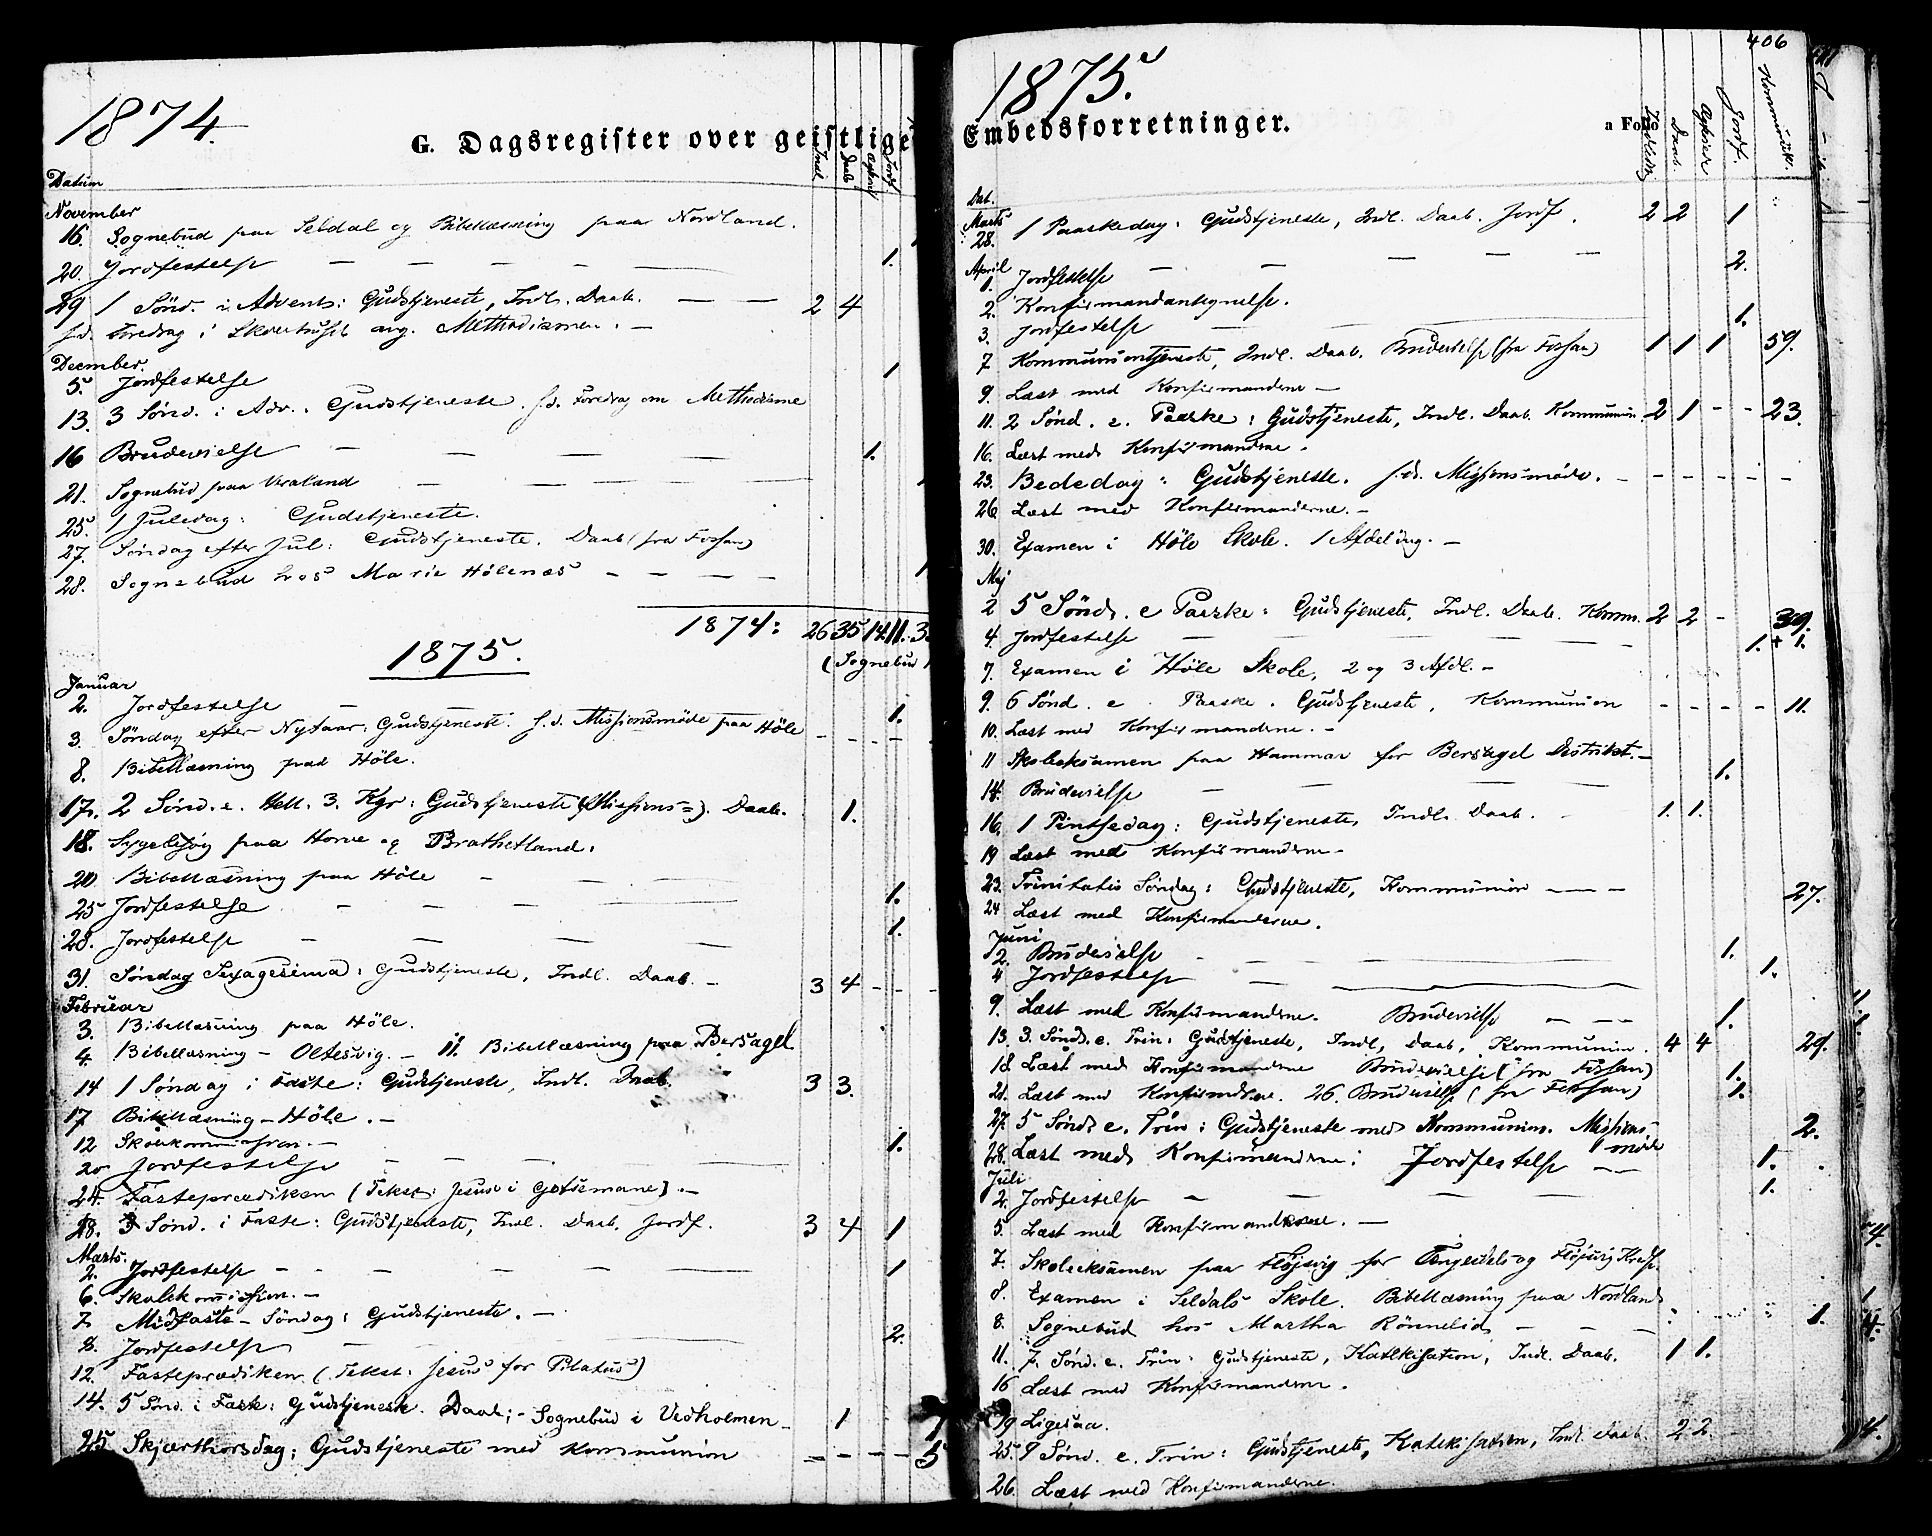 1874.
G. Dagsregister over geistlige
Indl. Daab Ægtevi Jordf
Datum
November
16. Sognebud paa Seldal og Bibellæsning paa Nordland.
20. Jordfestelse — — — — — 1.
29 1 Sönd. i Advent: Gudstjeneste, Indl. Daab. — — 2 4
s.d. Foredrag i Skolehuset ang. Methodismen. —
December.
5. Jordfestelse 1
13. 3 Sönd. i Adv. Gudstjeneste. s.d. Foredrag om Methodisme
16 Brudevielse — — — — 1.
21. Sognebud paa — — — —
25. 1 Juledag: Gudstjeneste.
27. Söndag efter Jul: Gudstjeneste. Daab (fra Fossan)
28. Sognebud hos Marie Hölenæs — — — —
1874: 26 35 14 11. 3
1875. (Sognebud
Januar
2. Jordfestelse — — 1.
3. Söndag efter Nytaar: Gudstjeneste. s.d. Missionsmöde paa Höle - - - -
8. Bibellæsning paa Höle.
17. 2 Sönd. e. Hell. 3. Kgr: Gudstjeneste (Missions=). Daab. 1.
18. Sygebesög paa Horve og Brathetland.
20 Bibellæsning paa Höle — — —
25 Jordfestelse — — — — 1.
28. Jordfestelse — — — — 1.
31. Söndag Sexagesima: Gudstjeneste, Indl. Daab. — 3 4 - - -
Februar
3. Bibellæsning paa Höle.
4. Bibellæsning — Oltesvig. — 11. Bibellæsning paa Bersagel
14 1 Söndag i Faste: Gudstjeneste, Indl. Daab. 3 3.
17 Bibellæsning — Höle. —
12 Skolekommission. —
20 Jordfestelse — — — — 1.
24. Fasteprædiken (Tekst: Jesus i Getsemane). —
28. 3 Sönd. i Faste: Gudstjeneste, Indl. Daab. Jordf. 3 4 1
Marts.
2. Jordfestelse — — — — — 1
6. Skolekomission. —
7 Midfaste — Söndag: Gudstjeneste. —
8. Jordfestelse — — 2.
12. Fasteprædiken (Tekst: Jesus for Pilatus)
14. 5 Sönd. i Faste: Gudstjeneste. Daab; - Sognebud i Vedholmen — 1
25. Skjærthorsdag: Gudstjeneste med Kommunion — — — — 5
1875.
406
Embedsforretninger.
a Folio
Daab. Jordf. Kommunik.
Dat.
Marts
28. 1 Paaskedag: Gudstjeneste, Indl. Daab. Jordf. 2 2 1
April
1. Jordfestelse — — — — — 2.
2. Konfirmandantegnelse.
3. Jordfestelse — 1.
7 Kommuniontjeneste, Indl. Daab. Brudevielse (fra Fossan) 1 1 1 59.
9. Læst med Konfirmanderne —
11. 2 Sönd. e. Paaske: Gudstjeneste, Indl. Daab. Kommunion. 2 1 - - 23.
16. Læst med Konfirmanderne.
23. Bededag: Gudstjeneste. s.d. Missionsmöde. - - - - - -
26 Læst med Konfirmanderne. —
30. Examen i Höle Skole. 1 Afdeling. —
Mej
2 5 Sönd. e Paaske: Gudstjeneste, Indl. Daab. Komm. 2 2 - 39.
4. Jordfestelse — — — — 1. + 1.
7. Examen i Höle Skole, 2 og 3 Afdl. —
9. 6 Sönd. e. Paaske. Gudstjeneste, Kommunion - - - - 11.
10. Læst med Konfirmanderne. —
11 Skoleeksamen paa Hammar for Bersagel Distrikt. —
14. Brudevielse — — — — 1.
16. 1 Pintsedag: Gudstjeneste, Indl. Daab. 1. 1.
19 Læst med Konfirmanderne —
23. Trinitatis Söndag: Gudstjeneste, Kommunion — — — 27.
24 Læst med Konfirmanderne.
Juni
2. Brudevielse — — — 1.
4 Jordfestelse — — 1.
9. Læst med Konfirmanderne. Brudevielse — — — 1.
13. 3. Sönd. e. Trin: Gudstjeneste, Indl, Daab, Kommunion. 4 4 29.
18 Læst med Konfirmanderne Brudevielse (fra Fossan) 1.
21. Læst med Konfirmdrne. 26. Brudevielse (fra Fossan) 1.
27. 5 Sönd. e. Trin: Gudstjeneste med Kommunion. Missions- 2.
möde
28. Læst med Konfirmanderne: Jordfestelse — — 1.
Juli
2. Jordfestelse — — — — 1.
5. Læst med Konfirmanderne. —
7. Skoleeksamen paa Höjsvig for og Kreds.
8. Examen i Seldals Skole. Bibellæsning paa Nordland
8. Sognebud hos Martha Rönnelid — — — 1.
11. 7. Sönd. e. Trin: Gudstjeneste, Katekisation, Indl. Daab. 1 1.
16 Læst med Konfirmanderne.
19 Ligesaa.
25. 9 Sönd. e. Trin: Gudstjeneste, Katekisation, Indl. Daab. 2 2. —
26. Læst med Konfirmanderne.